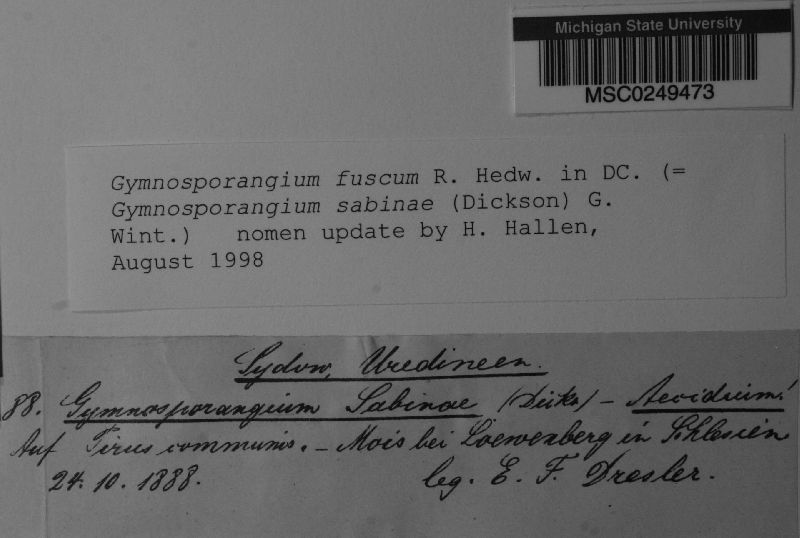 Michigan State University
MSC0249473
Gymnosporangium fuscum R. Hedw. in DC. (=
Gymnosporangium sabinae (Dickson) G.
Wint.) nomen update by H. Hallen,
August 1998
Sydow, Uredineen.
88. Gymnosporangium Sabinae (Dicks) – Aecidium!
Auf Pirus communis. – Mois bei Loewenberg in Schlesien
24. 10. 1888. leg. E. F. Dresler.